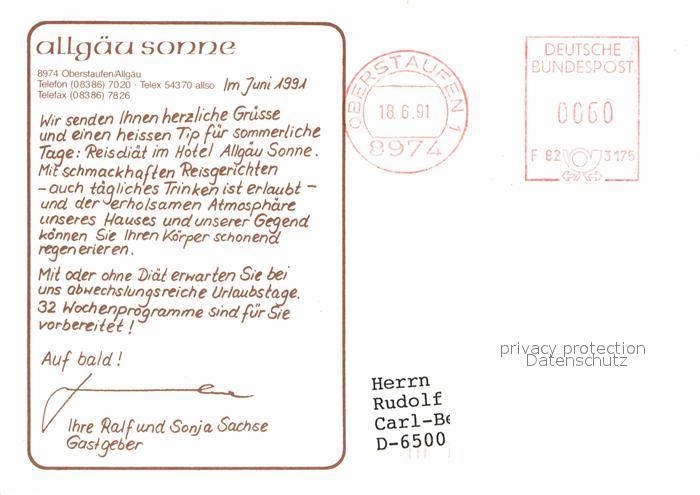 allgäu sonne
8974 Oberstaufen/Allgäu
Telefon (08386) 7020 · Telex 54370 allso
Telefax (08386) 7826
Im Juni 1991
Wir senden Ihnen herzliche Grüsse
und einen heissen Tip für sommerliche
Tage: Reisdiät im Hotel Allgäu Sonne.
Mit schmackhaften Reisgerichten
– auch tägliches Trinken ist erlaubt –
und der erholsamen Atmosphäre
unseres Hauses und unserer Gegend
können Sie Ihren Körper schonend
regenerieren.
Mit oder ohne Diät erwarten Sie bei
uns abwechslungsreiche Urlaubstage.
32 Wochenprogramme sind für Sie
vorbereitet!
Auf bald!
Ihre Ralf und Sonja Sachse
Gastgeber
OBERSTAUFEN 1
18.6.91
8974
DEUTSCHE
BUNDESPOST
0060
F 82 3175
privacy protection
Datenschutz
Herrn
Rudolf
Carl-Be
D-6500